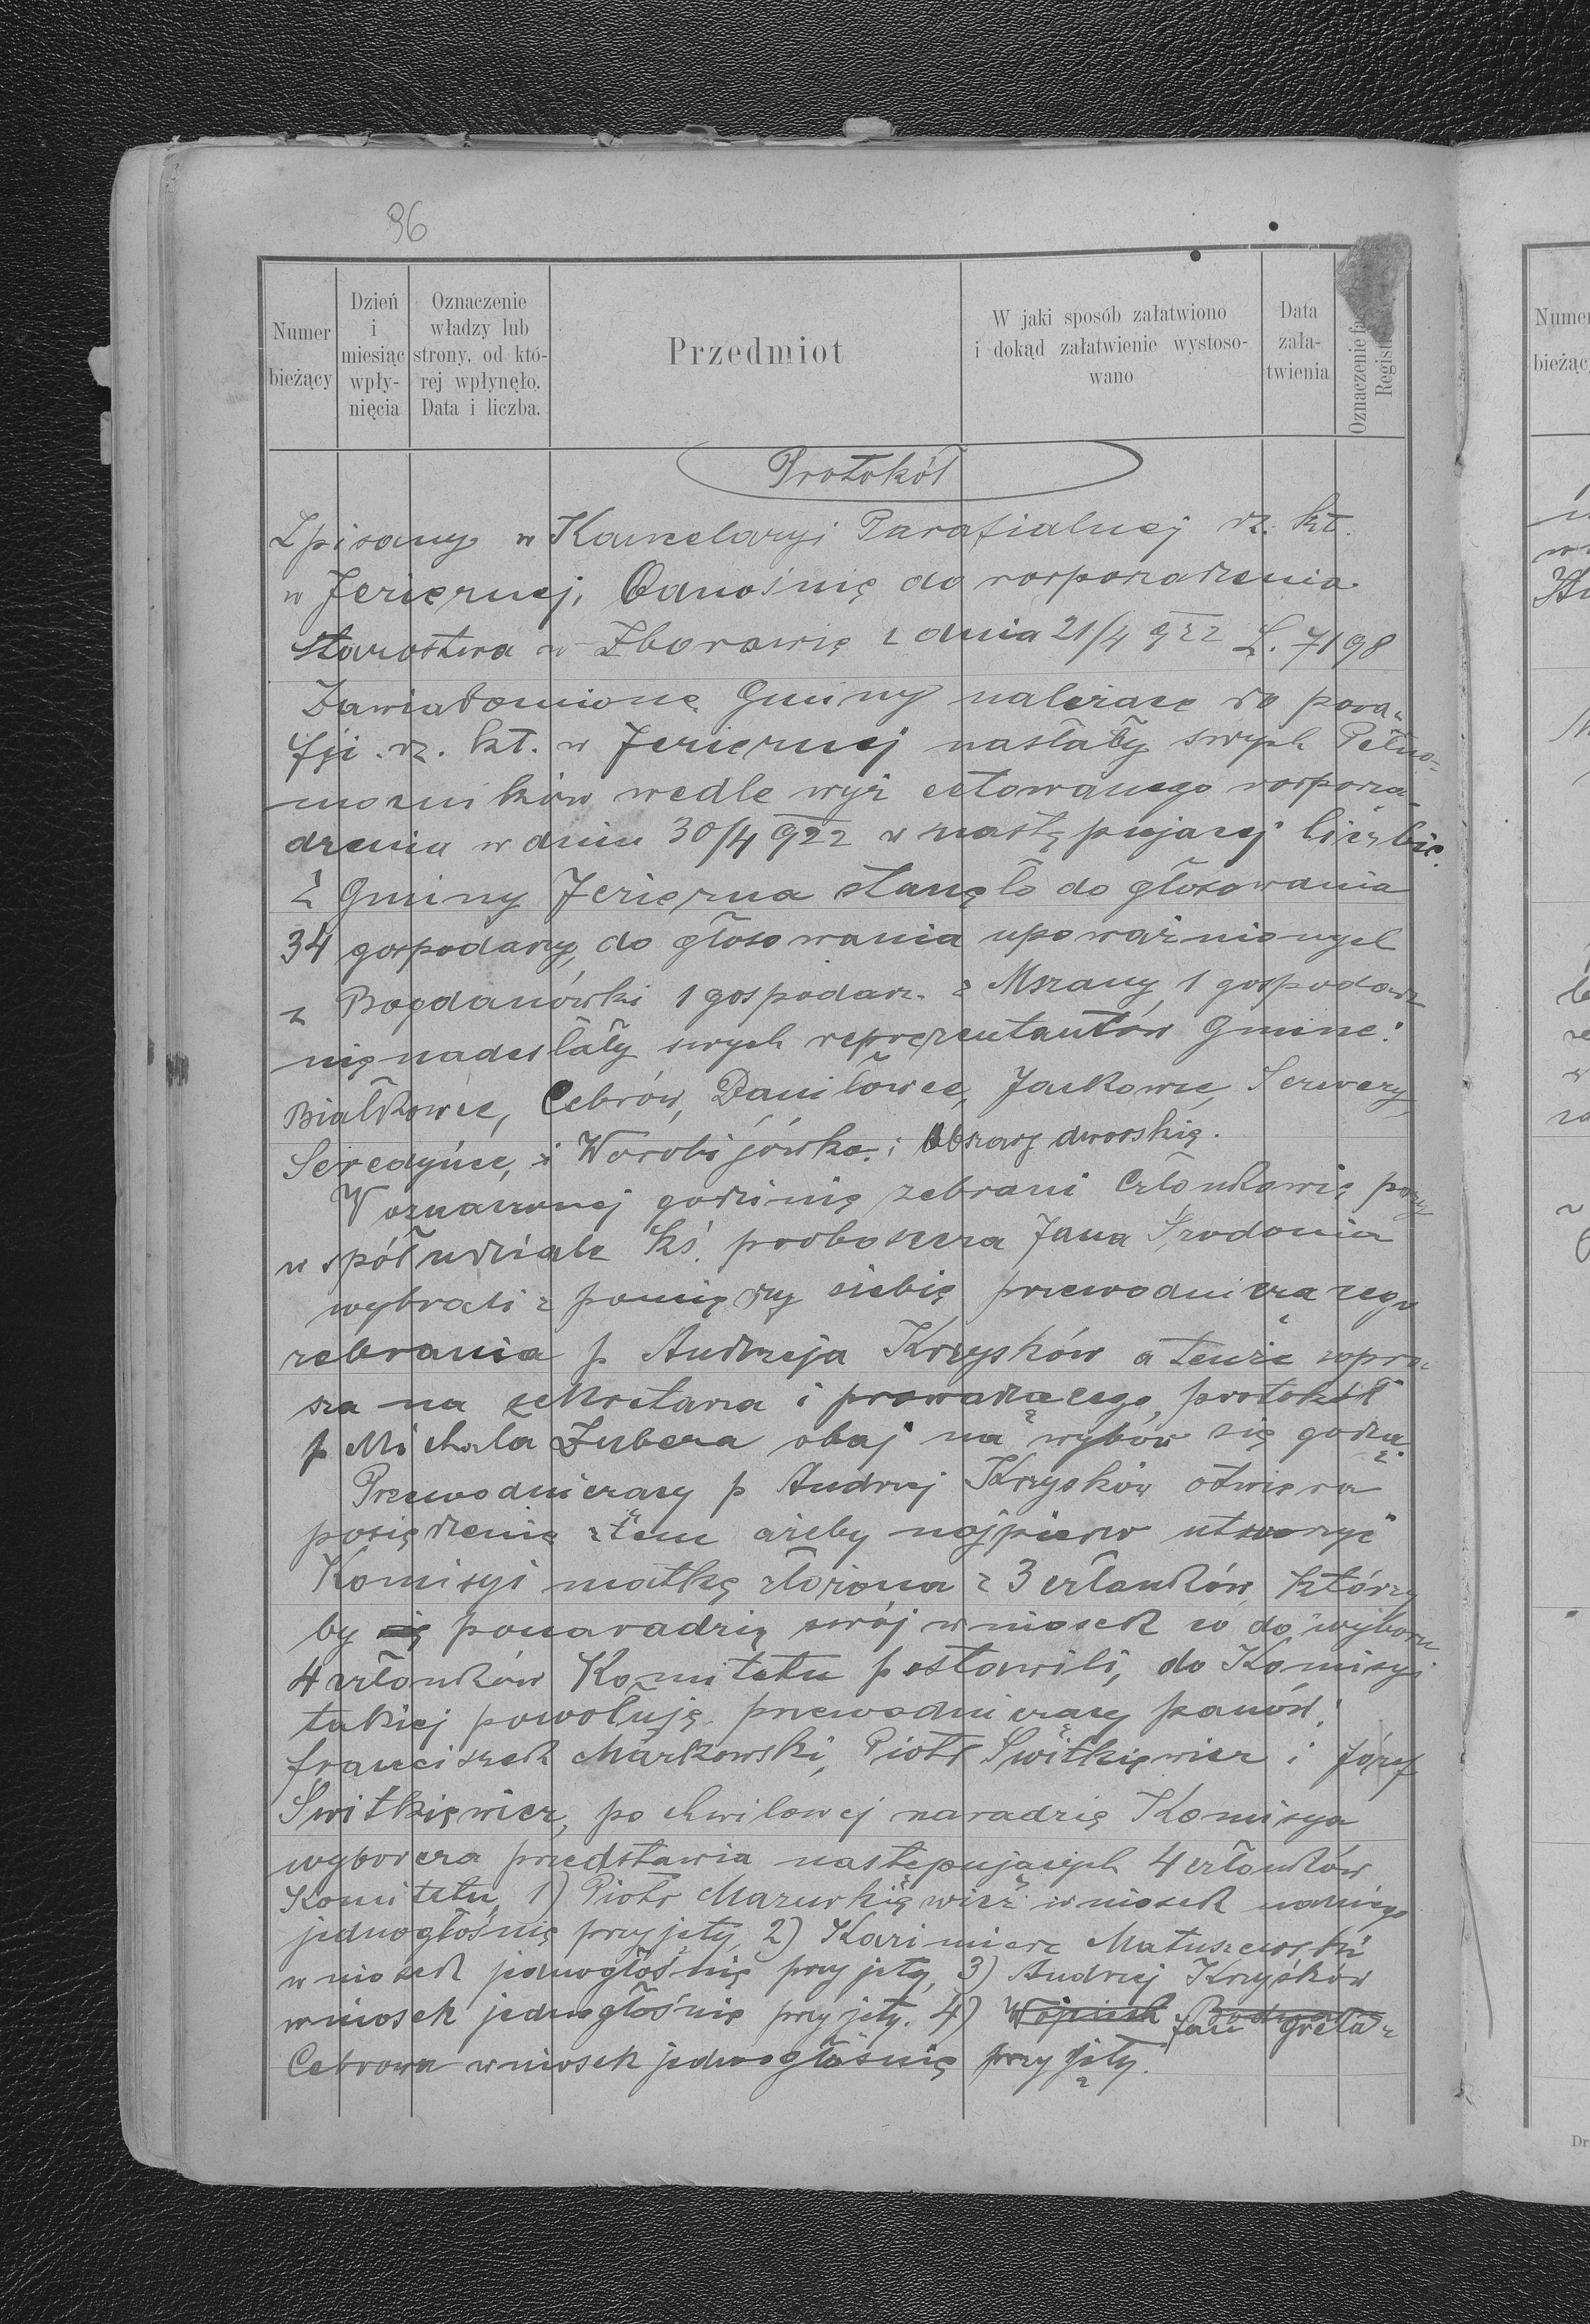 96
Numer bieżący
Dzień i miesiąc wpły-nięcia
Oznaczenie władzy lub strony, od któ-rej wpłynęło. Data i liczba.
Przedmiot
W jaki sposób załatwiono i dokąd załatwienie wystoso-wano
Data zała-twienia
Oznaczenie
Protokół
Zpisany w Kancelaryi Parafialnej rz. kt.
w Jeziernej. Odnośnię do rosporządzenia
Starostwa w Zborowię z dnia 21/4 922 L. 7198
Zawiadomione Gminy należące do para-
fji rz. kt. w Jeziernej nasłały swych Pełno-
mocników wedle wyż cetowanego rosporzą-
dzenia w dniu 30/4 922 w nastę pującej liczbie.
Z Gminy Jezierna stanęło do głosowania
34 gospodarzy, do głosowania upoważnionych
z Bogdanówki 1 gospodarz. z Mszany 1 gospodarz
nię nadesłały swych reprezentantów Gmine:
Białkowce, Cebrów, Daniłowce, Jackowce, Serwery,
Seredyńce, i Worobijówka i Obszary dworskię.
W oznaczonej godzinię zebrani Członkowię przy
współudziale Ks. proboszcza Jana Środonia
wybrali z pomię dzy siebię przewodniczącego
zebrania p Andrzeja Krzysków a tenże zapra-
sza na sekretarza i prowadzącego, protokół
p Michała Zubera obaj na wybór się godzą.
Przewodniczący p Andrzej Krzysków otwiera
posiędzenię z tem ażeby najpierw utworzyć
Komisyi matkę złożona z 3 członków, którzy
by ponaradzię swój wniosek co do wyboru
4 członków Komitetu postawili, do Komisyi
takiej powołuję przewodniczący panów:
Franciszek Markowski, Piotr Switkięwicz i Józef
Switkięwicz, po chwilowej naradzię Komisya
wyborcza przedstawia następujących 4 członków
Komitetu, 1) Piotr Mazurkięwicz wniosek
jednogłośnię przyjęty, 2) Kazimierz Matuszewski
wniosek jednogłośnię przyjęty, 3) Andrzej Krzyśków
wniosek jednogłośnie przyjęty. 4) Wojciech Jan Greła z
Cebrowa wniosek jednogłośnię przyjęty.
Numer
bieżąc
Dr